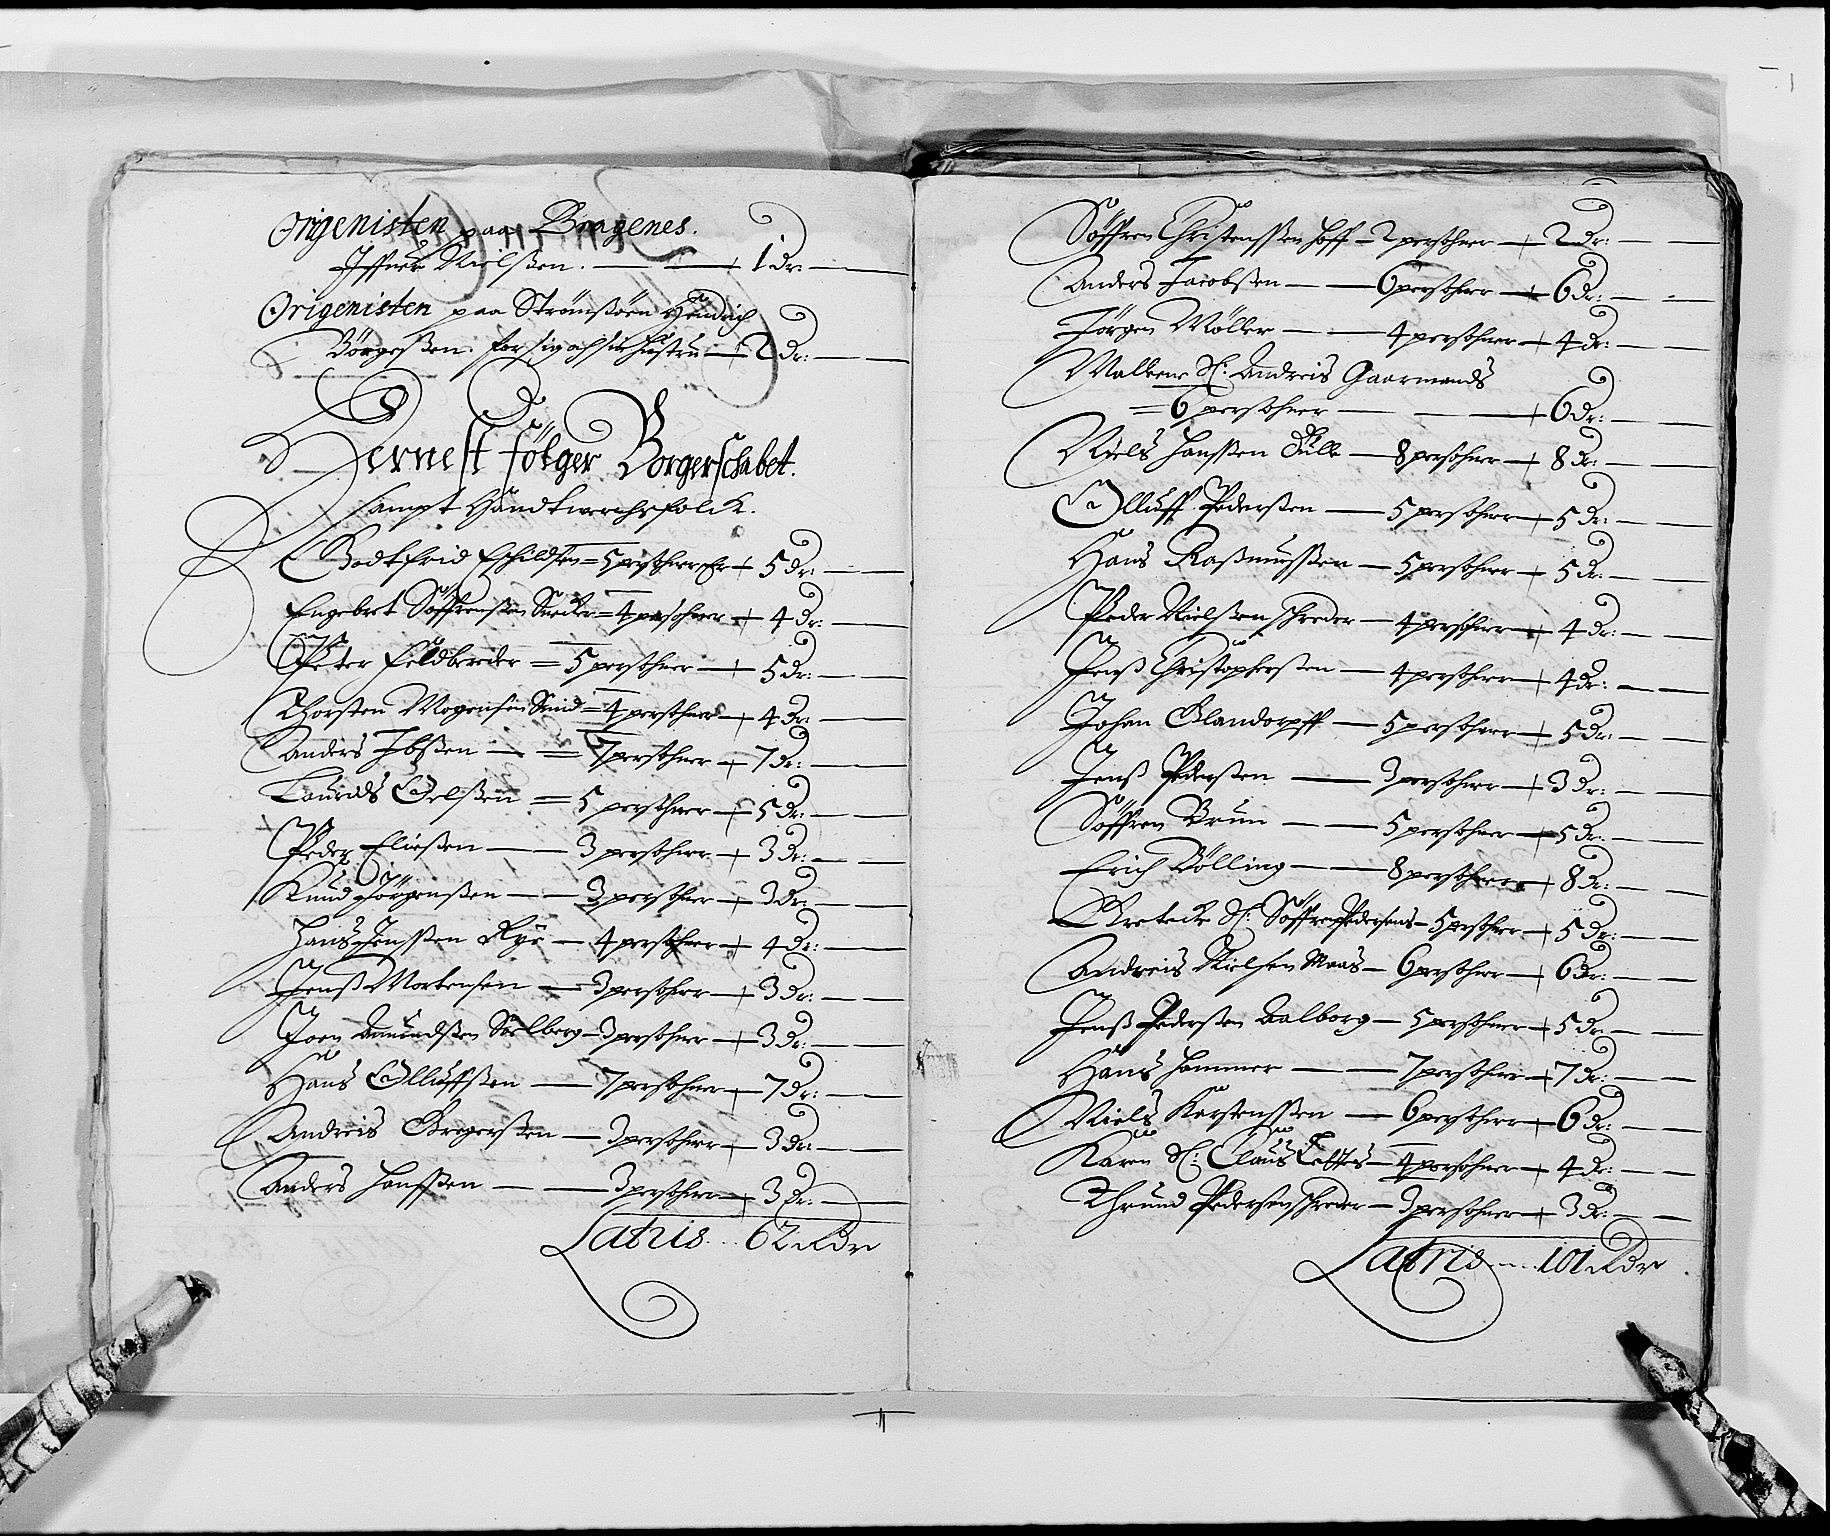 Origenisten paa Bragenes.
Iffuer Nielsßen. — — 1 Dr: —
Origenisten paa Strömsöen Hendrich
Börgesßen. for sig och sin hustru — 2 Dr: —
Dernest fölger Borgerschabet.
sampt Handtwerchsfolck.
Godtfrid Eschildsen = 5 persohner Er 5 Dr: —
Engebret Söffrensßen Snedker = 4 persohner 4 Dr: —
Peter Feldbereder = 5 persohner — 5 Dr: —
Thorsten Mogensen Smid = 4 persohner — 4 Dr: —
Anders Ibsßen — = 7 persohner — 7 Dr: —
Laurids Oelsßen = 5 persohner — 5 Dr: —
Peder Eliesßen — 3 persohner — 3 Dr: —
Knud Jörgensßen — 3 persohner — 3 Dr: —
Hans Jensßen Rye — 4 persohner — 4 Dr: —
Jenß Mortensen — 3 persohner — 3 Dr: —
Joen Amundsßen Sölberg — 3 persohner — 3 Dr: —
Hans Olluffsßen — 7 persohner — 7 Dr: —
Andreis Gregersßen — 3 persohner — 3 Dr: —
Anders Hansßen — 3 persohner — 3 Dr: —
Latris. 62 Rdr
Söffren Christensßen hoff — 2 persohner — 2 Dr: —
Anders Jacobsßen — 6 persohner — 6 Dr: —
Jörgen Möller — 4 persohner — 4 Dr: —
Malleene Sl: Andreis Gaarmands
= 6 persohner — — 6 Dr: —
Niels Hansßen — 8 persohner — 8 Dr: —
Olluff Pedersßen — 5 persohner — 5 Dr: —
Hans Raßmusßen — 5 persohner — 5 Dr: —
Peder Nielsßen schreder — 4 persohner — 4 Dr: —
Jenß Christophersßen — 4 persohner — 4 Dr: —
Johan Glandorpff — 5 persohner — 5 Dr: —
Jenß Pedersßen — 3 persohner — 3 Dr: —
Söffren Brun — 5 persohner — 5 Dr: —
Erich Bölling — 8 persohner — 8 Dr: —
Sl: Söffren Pedersens — 5 persohner — 5 Dr: —
Andreis Nielsen Maas — 6 persohner — 6 Dr: —
Jenß Pedersßen Aalborg — 5 persohner — 5 Dr: —
Hans Hammer — 7 persohner — 7 Dr: —
Niels Karstensßen — 6 persohner — 6 Dr: —
Karen Sl: Claus — 4 persohner — 4 Dr: —
Thrund Pedersen schreder — 3 persohner — 3 Dr: —
Latris 101 Rdr